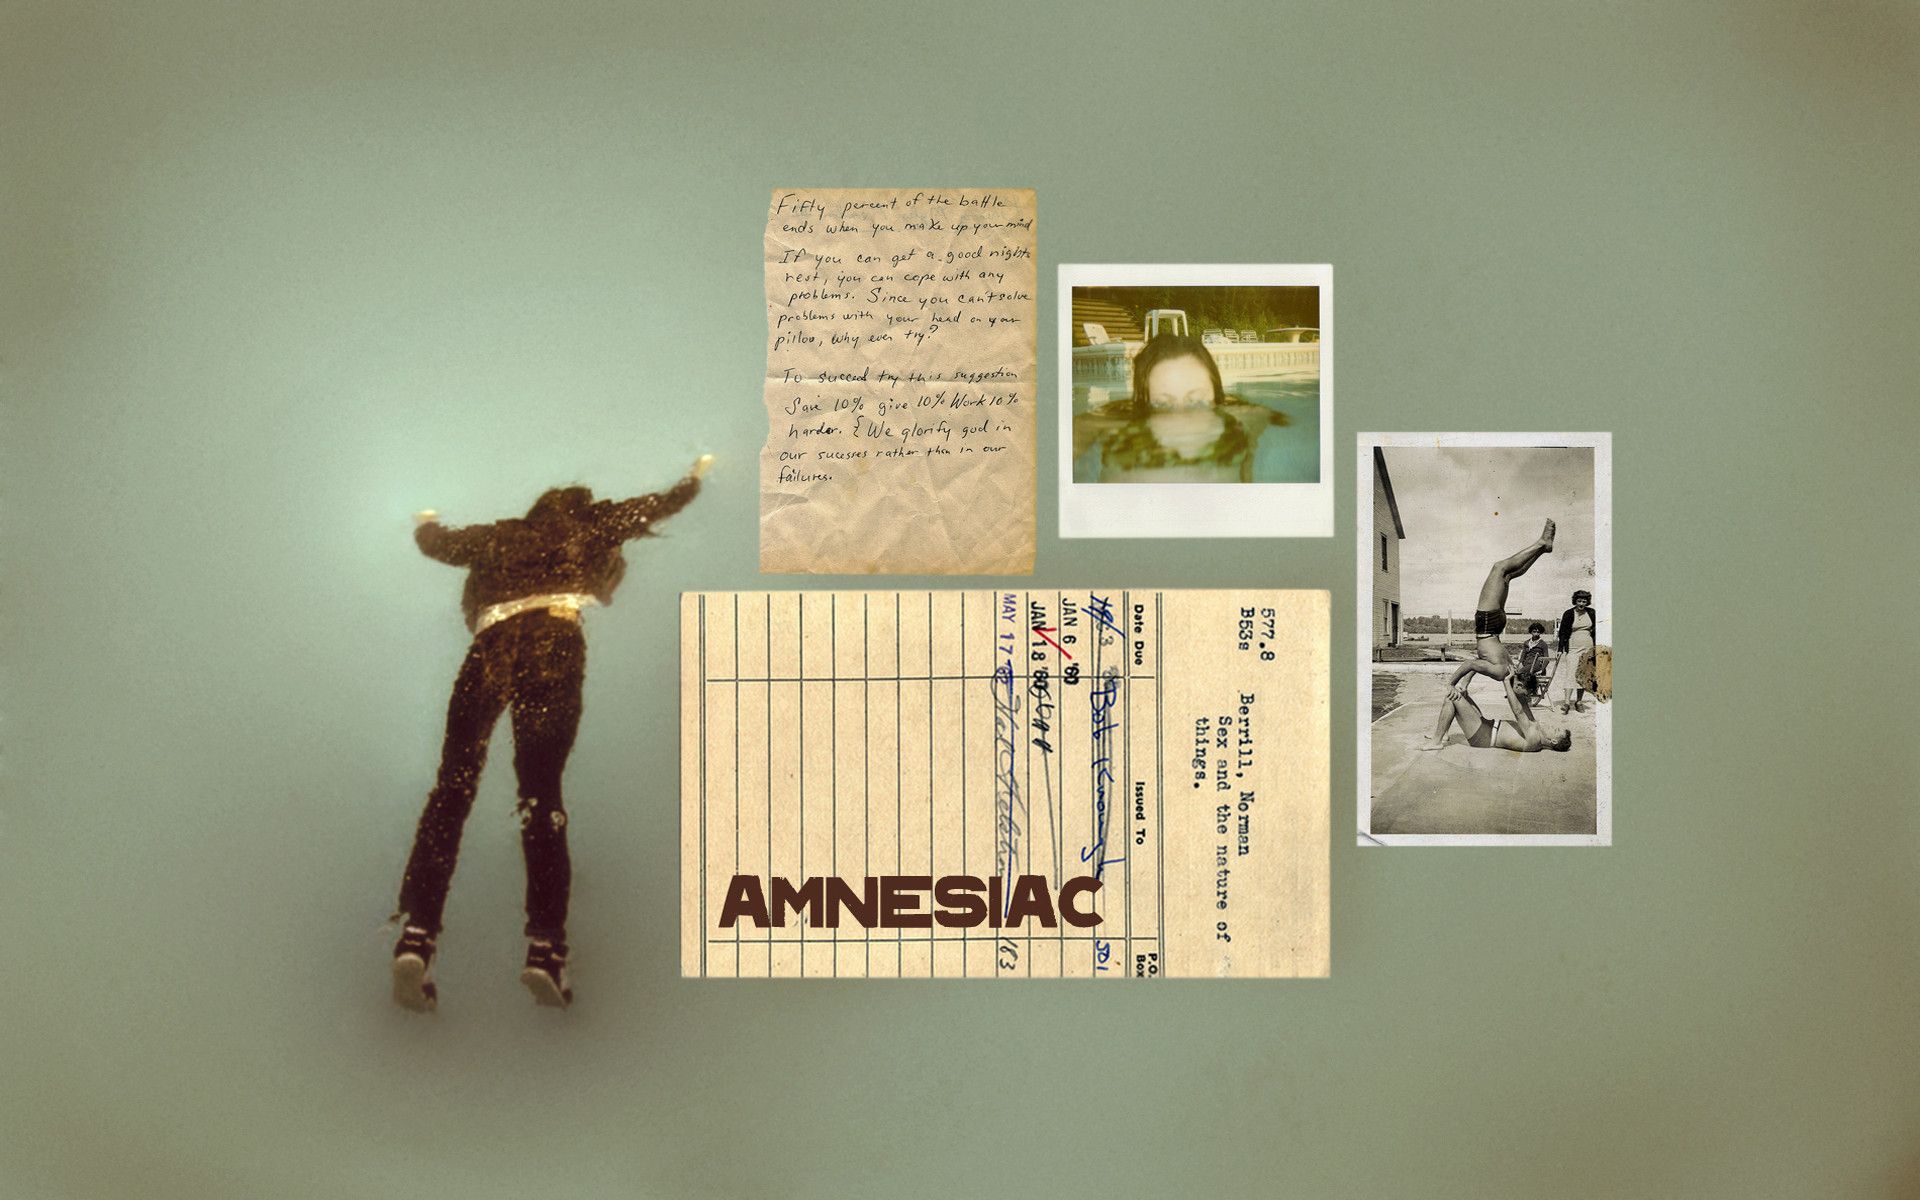 Fifty percent of the battle
ends when you make up your mind
If you can get a good nights
rest, you can cope with any
problems. Since you can't solve
problems with your head on your
pillow, why even try?
To succeed try this suggestion
Save 10% give 10% Work 10%
harder. & We glorify god in
our sucesses rather than in our
failures.
577.8
B53s
Berrill, Norman
Sex and the nature of
things.
Date Due
Issued To
P.O. Box
Bob
JAN 6 '60
JAN 18 '60
MAY 17
183
AMNESIAC